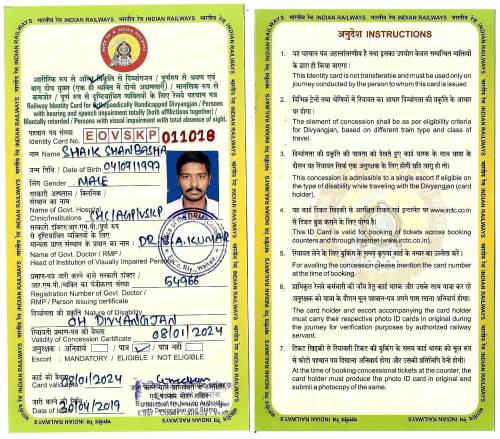 भारतीय रेल INDIAN RAILWAYS भारतीय रेल INDIAN RAILWAYS
शारीरिक रूप से अस्थि विकृति से दिव्यांगजन / पूर्णरूप से श्रवण एवं
वाक् दोष युक्त (एक ही व्यक्ति में दोनो अक्षमताएं) / मानसिक रूप से
कमजोर / पूर्ण रूप से दृष्टिबाधित व्यक्तियों के लिए रेलवे पहचान कार्ड
Railway Identity Card for Orthopedically Handicapped Divyangjan / Persons
with hearing and speech impairment totally (both afflictions together) /
Mentally retarded / Persons with visual impairment with total absence of sight.
पहचान पत्र संख्या
Identity Card No. EOVSKP 011028
नाम Name SHAIK SHANBASHA
जन्म तिथि / Date of Birth 04/07/1997
लिंग Gender MALE
सरकारी अस्पताल / क्लिनिक/
संस्थान का नाम
Name of Govt. Hospital/
Clinic/Institutions
सरकारी डॉक्टर/आर.एम.पी./पूर्ण रूप
से दृष्टिबाधित व्यक्तियों के लिए
मान्यता प्राप्त संस्थान के प्रधान का नाम : DR. A. KUMAR
Name of Govt. Doctor / RMP /
Head of Institution of Visually Impaired Person
प्रमाण-पत्र जारी करने वाले सरकारी डॉक्टर/
आर.एम.पी. का पंजीकरण संख्या 54966
Registration Number of Govt. Doctor /
RMP / Person issuing certificate
दिव्यांगता की प्रकृति Nature of Disability
OH DIVYANGJAN
रियायती प्रमाण-पत्र की वैधता
Validity of Concession Certificate 08/01/2024
अनुरक्षक : अनिवार्य / पात्र / पात्र नहीं
Escort : MANDATORY / ELIGIBLE / NOT ELIGIBLE
कार्ड की वैधता
Card valid 08/01/2024
जारी करने की तारीख
Date of Issue 20/04/2019
with Designation and Stamp
अनुदेश INSTRUCTIONS
1. यह पहचान पत्र अहस्तांतरणीय है तथा इसका उपयोग केवल सम्बन्धित व्यक्तियों
के द्वारा ही किया जाएगा।
This Identity card is not transferable and must be used only on
journey conducted by the person to whom this card is issued
2. विभिन्न ट्रेनों तथा श्रेणियों में रियायत का आधार दिव्यांगता की प्रकृति के आधार
पर होगा।
The element of concession shall be as per eligibility criteria
for Divyangjan, based on different train type and class of
travel.
3. दिव्यांगता की प्रकृति की पात्रता को देखते हुए कार्ड धारक के साथ यात्रा के
दौरान यह रियायत सिर्फ एक अनुरक्षक के लिए होगी यदि लागू हो तो।
This concession is admissible to a single escort if eligible on
the type of disability while traveling with the Divyangjan (card
holder).
4. यह कार्ड टिकट खिड़की से आरक्षित टिकट एवं इन्टरनेट पर www.irctc.co.in
से टिकट बुक कराने के लिए योग्य होगी।
This ID Card is valid for booking of tickets across booking
counters and through Internet (www.irctc.co.in).
5. रियायत लेने के लिए बुकिंग के समय कृपया कार्ड के नम्बर का उल्लेख करें।
For availing the concession please mention the card number
at the time of booking.
6. प्राधिकृत रेलवे कर्मचारी की जाँच हेतु कार्ड धारक और उसके साथ यात्रा कर रहे
अनुरक्षक को यात्रा के दौरान मूल पहचान-पत्र अपने पास रखना अनिवार्य होगा।
The card holder and escort accompanying the card holder
must carry their respective photo ID cards in original during
the journey for verification purposes by authorized railway
servant.
7. टिकट खिड़की से रियायती टिकट की बुकिंग के समय कार्ड धारक को मूल रूप
से फोटो पहचान पत्र दिखाना अनिवार्य होगा और उसकी एक प्रतिलिपि देनी होगी।
At the time of booking concessional tickets at the counter, the
card holder must produce the photo ID card in original and
submit a photocopy of the same.
भारतीय रेल INDIAN RAILWAYS भारतीय रेल INDIAN RAILWAYS